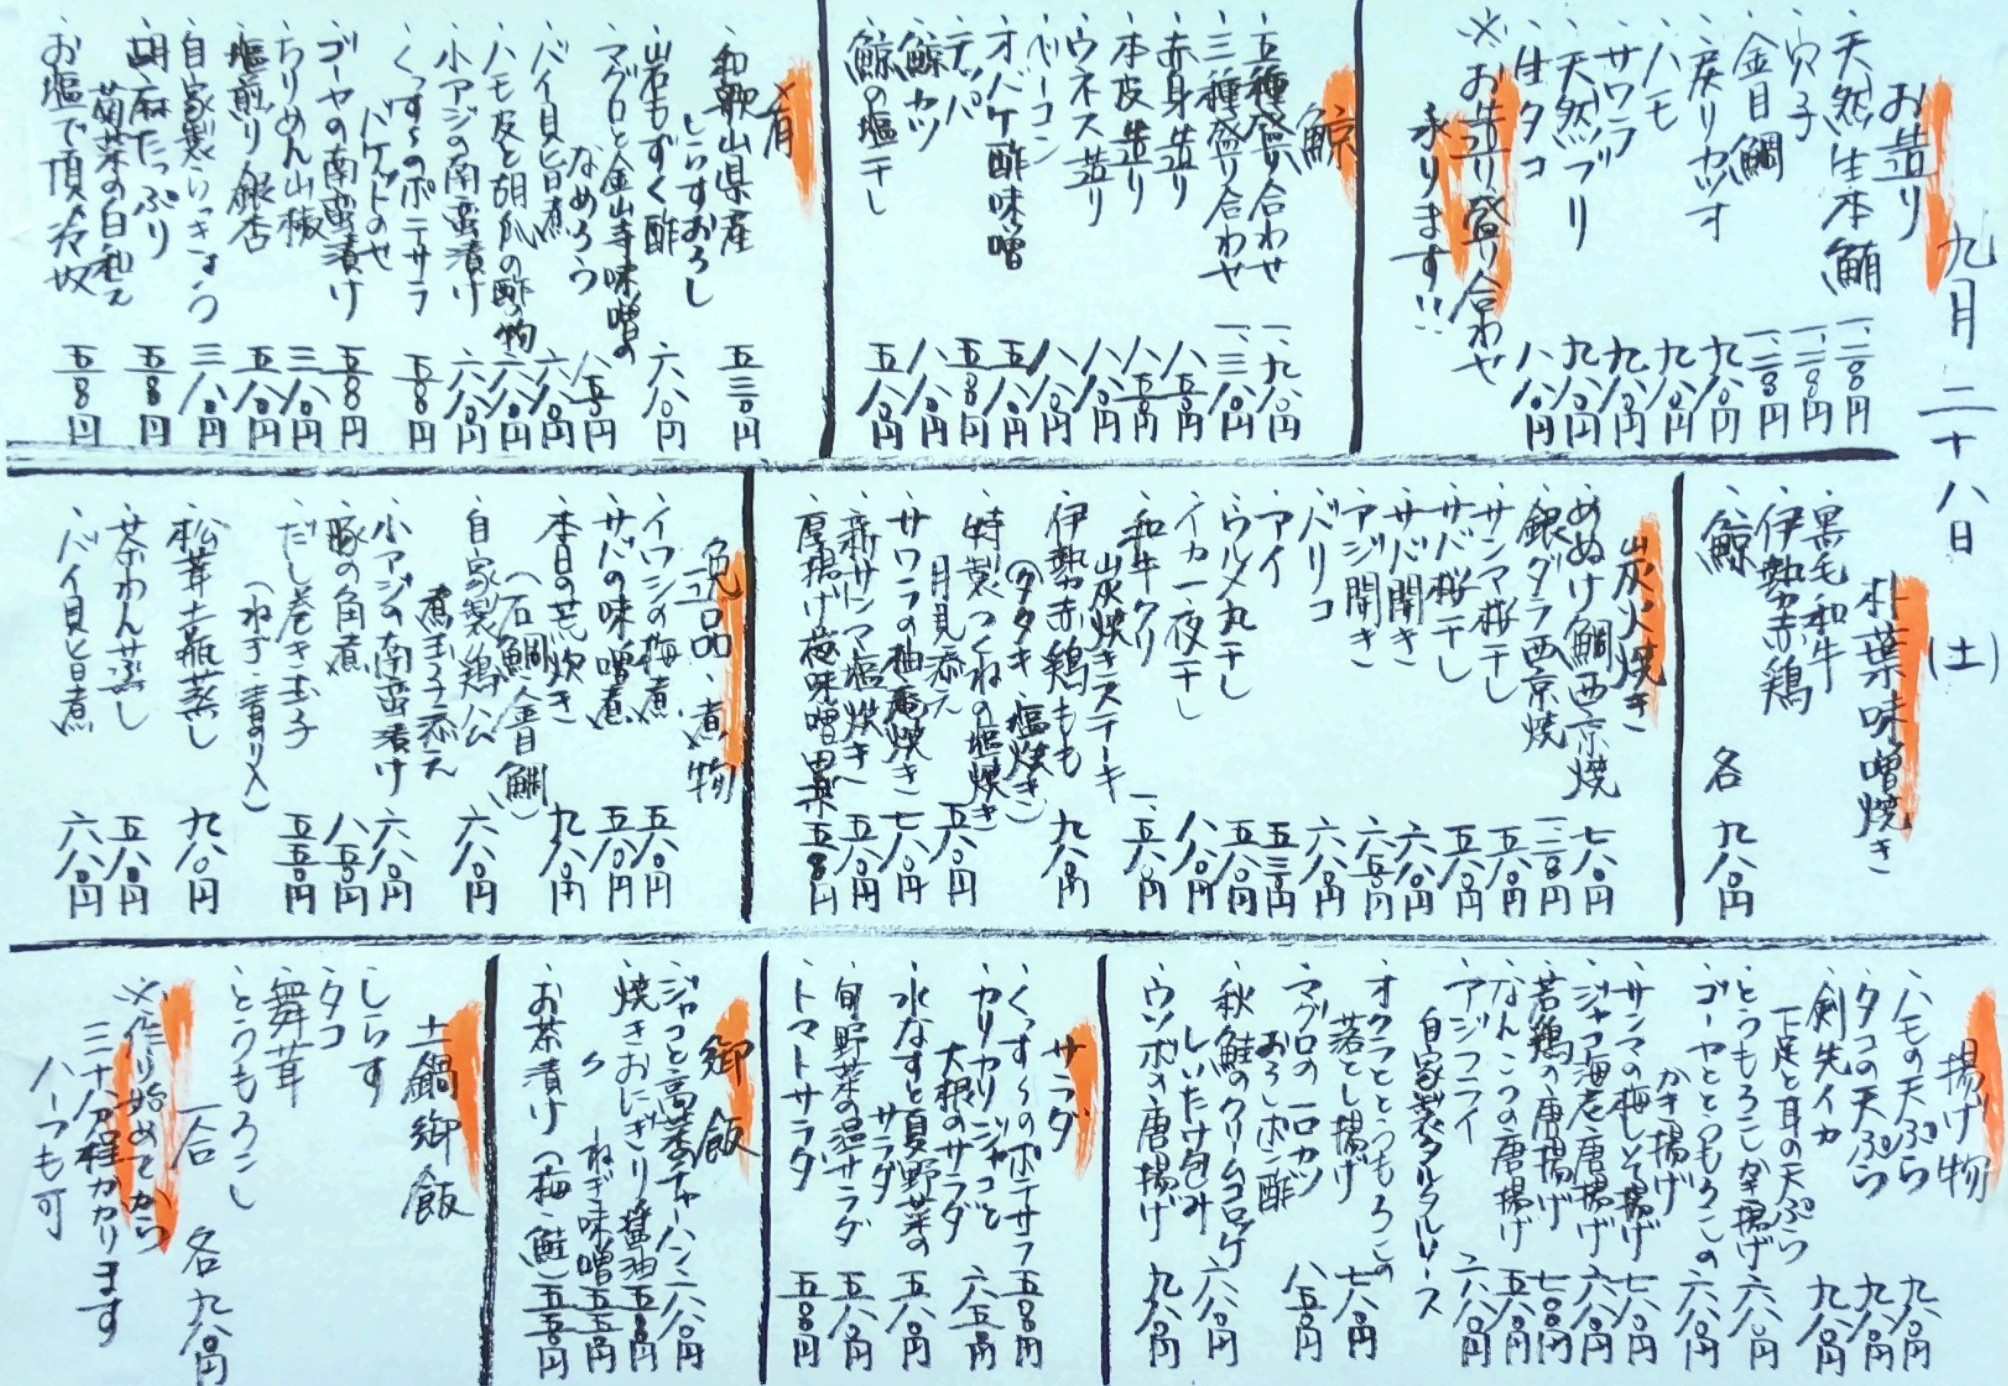 九月二十八日(土)
お造り
、天然生本鮪 一、二〇〇円
、穴子 一、二〇〇円
、金目鯛 一、二〇〇円
、戻りカツオ 九八〇円
、ハモ 九八〇円
、サワラ 九八〇円
、天然ブリ 九八〇円
、生タコ 八八〇円
※お造り盛り合わせ
承ります!!
鯨
、五種盛り合わせ 一、九八〇円
、三種盛り合わせ 一、三八〇円
、赤身造り 八五〇円
、本皮造り 八五〇円
、ウネス造り 八八〇円
、ベーコン 八八〇円
、オバケ酢味噌 五八〇円
、テッパ 五五〇円
、鯨カツ 八八〇円
、鯨の塩干し 五八〇円
肴
、和歌山県産
しらすおろし 五三〇円
、岩もずく酢 六八〇円
、マグロと金山寺味噌の
なめろう 八五〇円
、バイ貝旨煮 六八〇円
、ハモ皮と胡瓜の酢の物 六八〇円
、小アジの南蛮漬け 六八〇円
、くっすーのポテサラ
バゲットのせ 五五〇円
、ゴーヤの南蛮漬け 五五〇円
、ちりめん山椒 三八〇円
、塩煎り銀杏 五八〇円
、自家製らっきょう 三八〇円
、胡麻たっぷり
菊菜の白和え 五五〇円
、お塩で頂く冷奴 五五〇円
朴葉味噌焼き
、黒毛和牛
、伊勢赤鶏
、鯨 各九八〇円
炭火焼き
、めぬけ鯛西京焼 七八〇円
、銀ダラ西京焼 一、二〇〇円
、サンマ桜干し 五八〇円
、サバ桜干し 五八〇円
、サバ開き 六八〇円
、アジ開き 六五〇円
、バリコ 六八〇円
、アイ 五三〇円
、ウルメ丸干し 五八〇円
、イカ一夜干し 八八〇円
、和牛クリ
炭焼きステーキ 一、五八〇円
、伊勢赤鶏もも 九八〇円
(タタキ・塩焼き)
、特製つくねの塩焼き
月見添え 五八〇円
、サワラの柚庵焼き 七八〇円
、新サンマ塩焼き 五八〇円
、厚揚げ梅味噌田楽 五五〇円
逸品・煮物
、イワシの梅煮 五八〇円
、サバの味噌煮 五八〇円
、本日の荒炊き 九八〇円
(石鯛、金目鯛)
、自家製鶏ハム
煮玉子添え 六八〇円
、小アジの南蛮漬け 六八〇円
、豚の角煮 八五〇円
、だし巻き玉子 五五〇円
(ねぎ・青のり入)
、松茸土瓶蒸し 九八〇円
、茶わんむし 五八〇円
、バイ貝旨煮 六八〇円
揚げ物
、ハモの天ぷら 九八〇円
、タコの天ぷら 九八〇円
、剣先イカ
下足と耳の天ぷら 九八〇円
、とうもろこしかき揚げ 六八〇円
、ゴーヤととうもろこしの
かき揚げ 六八〇円
、サンマの梅しそ揚げ 七八〇円
、ジャコ海老唐揚げ 六八〇円
、若鶏の唐揚げ 七〇〇円
、なんこつの唐揚げ 五八〇円
、アジフライ
自家製タルタルソース 六八〇円
、オクラととうもろこしの
落とし揚げ 七八〇円
、マグロの一口カツ
おろしポン酢 八五〇円
、秋鮭のクリームコロッケ
しいたけ包み 六八〇円
、ウツボの唐揚げ 九八〇円
サラダ
、くっすーのポテサラ 五〇〇円
、カリカリジャコと
大根のサラダ 六五〇円
、水なすと夏野菜の
サラダ 五八〇円
、旬野菜の温サラダ 五八〇円
、トマトサラダ 五五〇円
御飯
、ジャコと高菜のチャーハン 六八〇円
、焼きおにぎり醤油 五〇〇円
〃 ねぎ味噌 五五〇円
、お茶漬け(梅・鮭) 五五〇円
土鍋御飯
、しらす
、タコ
、舞茸
、とうもろこし
一合 各九八〇円
※作り始めてから
三十分程かかります
ハーフも可